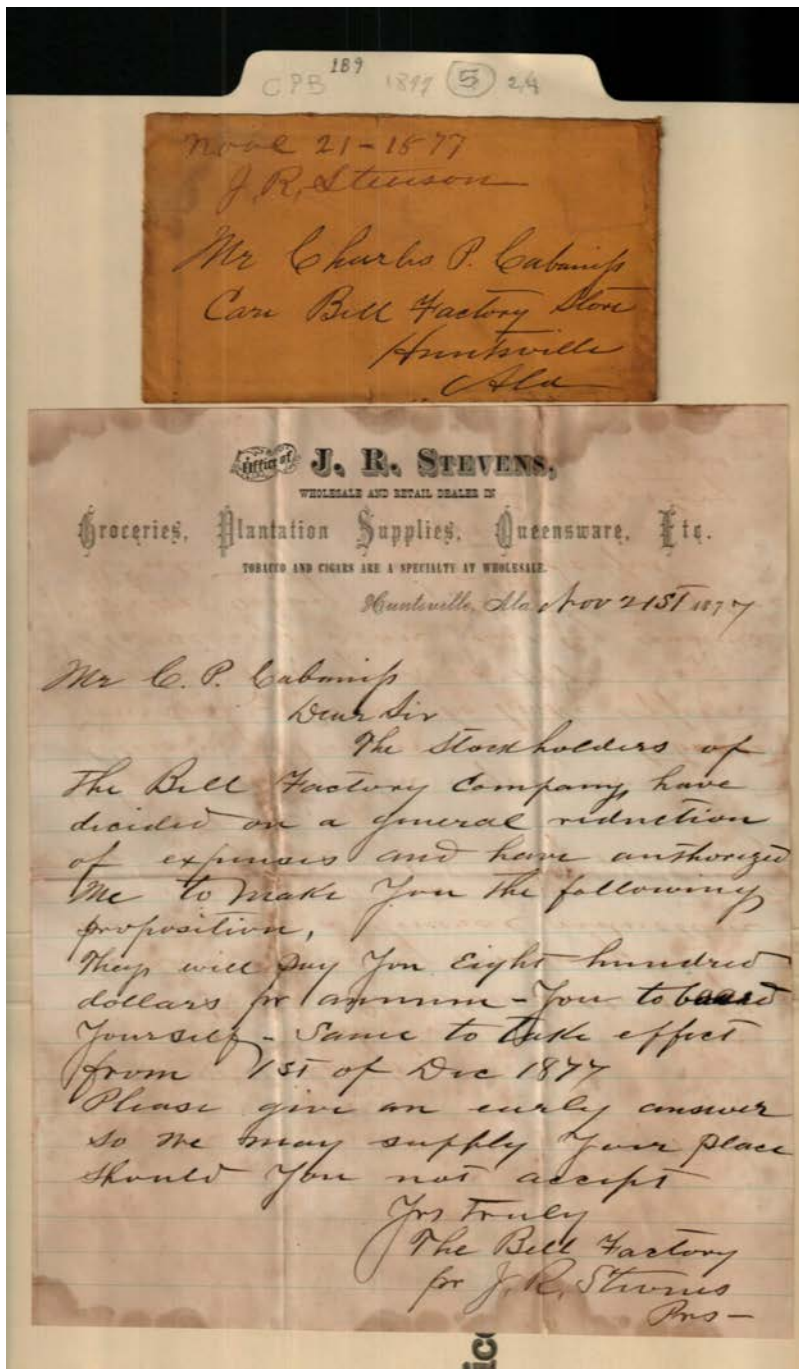 CPB 189 1877 5 24
Nov 21-1877
J. R. Stevson
Mr Charles P. Cabaniss
Care Bell Factory Store
Huntsville
Ala
Office of J. R. STEVENS,
WHOLESALE AND RETAIL DEALER IN
Groceries, Plantation Supplies, Queensware, Etc.
TOBACCO AND CIGARS ARE A SPECIALTY AT WHOLESALE.
Huntsville, Ala Nov 21ST 1877
Mr C. P. Cabaniss
Dear Sir
The Stockholders of
The Bell Factory Company, have
decided on a general reduction
of expenses and have authorized
Me to make You the following
proposition,
They will pay You Eight hundred
dollars pr annum - You to board
Yourself - Same to take effect
from 1st of Dec 1877
Please give an early answer
so We may supply Your place
should You not accept
Yrs Truly
The Bell Factory
pr J. R. Stevens
Prs -